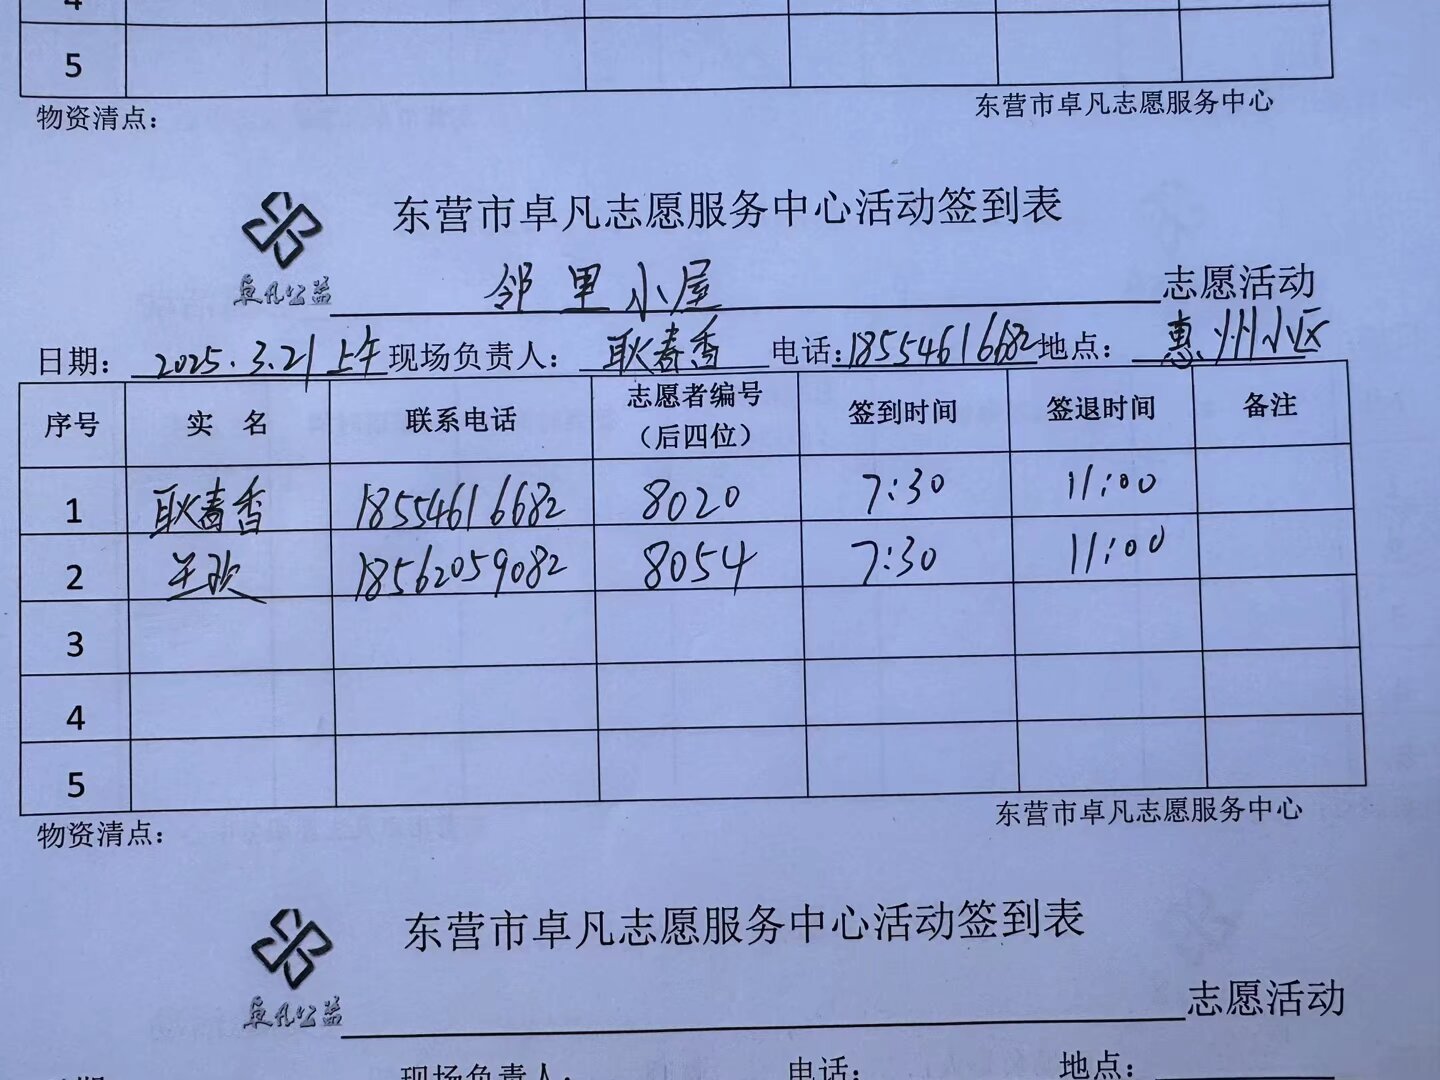 4
5
物资清点：
东营市卓凡志愿服务中心
东营市卓凡志愿服务中心活动签到表
卓凡公益
邻里小屋 志愿活动
日期： 2025.3.21上午 现场负责人： 耿春香 电话：18554616682 地点： 惠州小区
序号 实 名 联系电话 志愿者编号（后四位） 签到时间 签退时间 备注
1 耿春香 18554616682 8020 7:30 11:00
2 18562059082 8054 7:30 11:00
3
4
5
物资清点：
东营市卓凡志愿服务中心
东营市卓凡志愿服务中心活动签到表
卓凡公益
志愿活动
现场负责人： 电话： 地点：